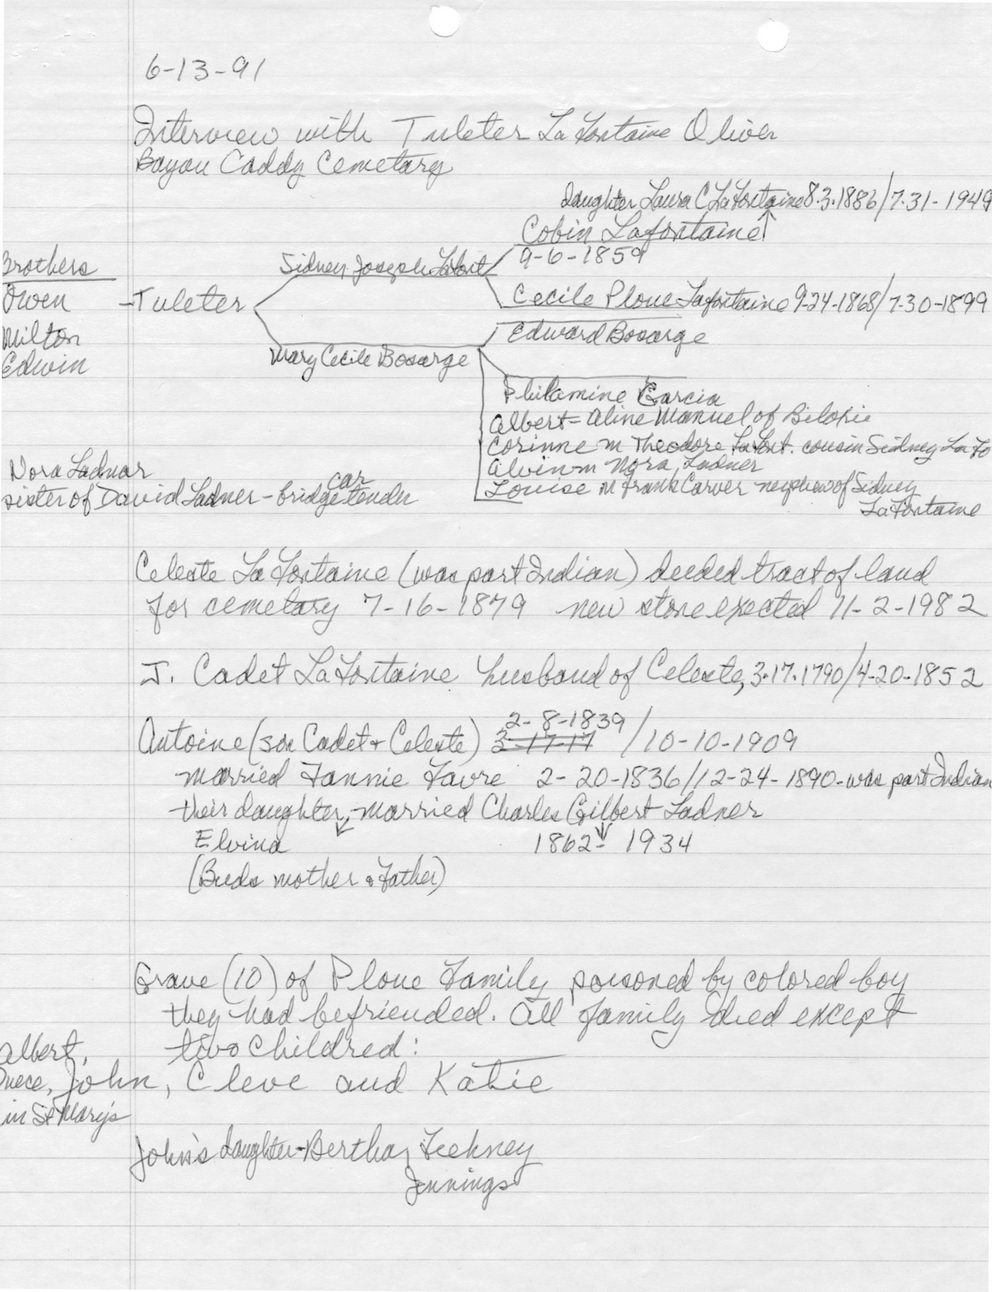 6-13-91
Interview with Tuleter La Fontaine Oliver
Bayou Caddy Cemetary
daughter Laura C La Fontaine 8.3.1886/7-31-1949
Cobin Lafontaine
9-6-1859
Brothers
Sidney Joseph Lafont
Owen
-Tuleter
Cecile Ploue Lafontaine 9-24-1868/7-30-1899
Milton
Edward Bosarge
Edwin
Mary Cecile Bosarge
Philamine Garcia
Albert- Aline Manuel of Biloxie
Corinne m Theodore LaFont. cousin Sidney La Fo
Nora Ladnar
Alvin m Nora Ladner
car
sister of David Ladner - bridgetender
Louise m Frank Carver nephew of Sidney
La Fontaine
Celeste La Fontaine (was part Indian) deeded tract of land
for cemetary 7-16-1879 new stone expected 11-2-1982
J. Cadet La Fontaine husband of Celeste, 3.17.1790/4-20-1852
2-8-1839
Antoine (son Cadet + Celeste) 3-17-17 /10-10-1909
married Fannie Favre 2-20-1836/12-24-1890-was part Indian
their daughter, married Charles Gilbert Ladner
Elvina 1862- 1934
(Buds mother & Father)
Grave (10) of Ploue Family poisoned by colored boy
they had befriended. All family died except
two childred:
Albert,
John, Cleve and Katie
in St Mary's
John's daughter-Bertha
Jennings